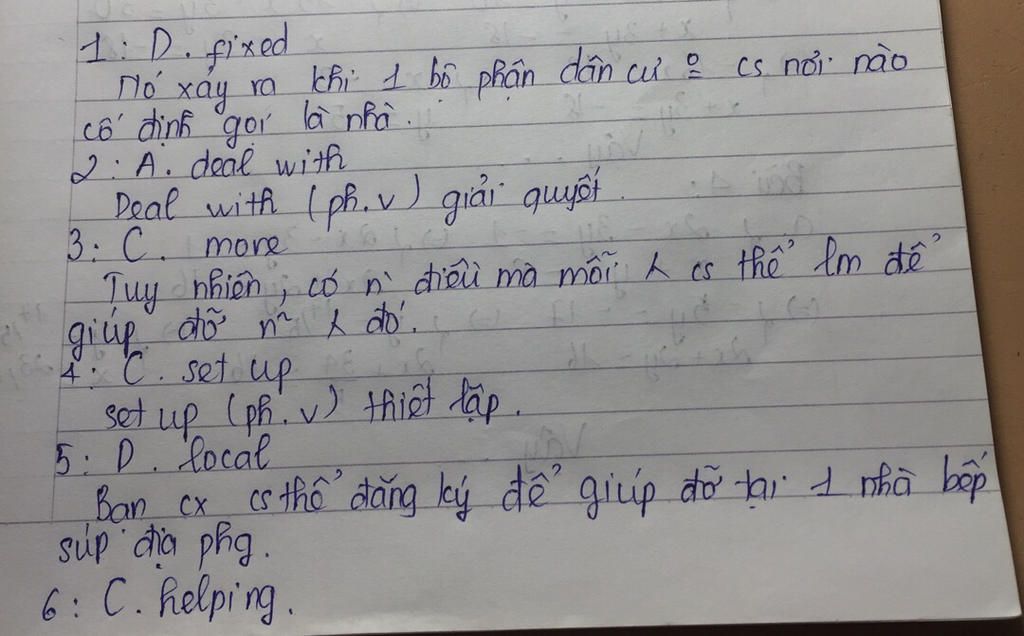 1: D. fixed
Nó xảy ra khi 1 bộ phận dân cư cs nơi nào
cố định gọi là nhà.
2: A. deal with
Deal with (ph.v) giải quyết.
3: C. more
Tuy nhiên, có n` điều mà mỗi cs thể lm để
giúp đỡ n~ đó.
4: C. set up
set up (ph.v) thiết lập.
5: D. local
Bạn cx cs thể đăng ký để giúp đỡ tại 1 nhà bếp
súp địa phg.
6: C. helping.